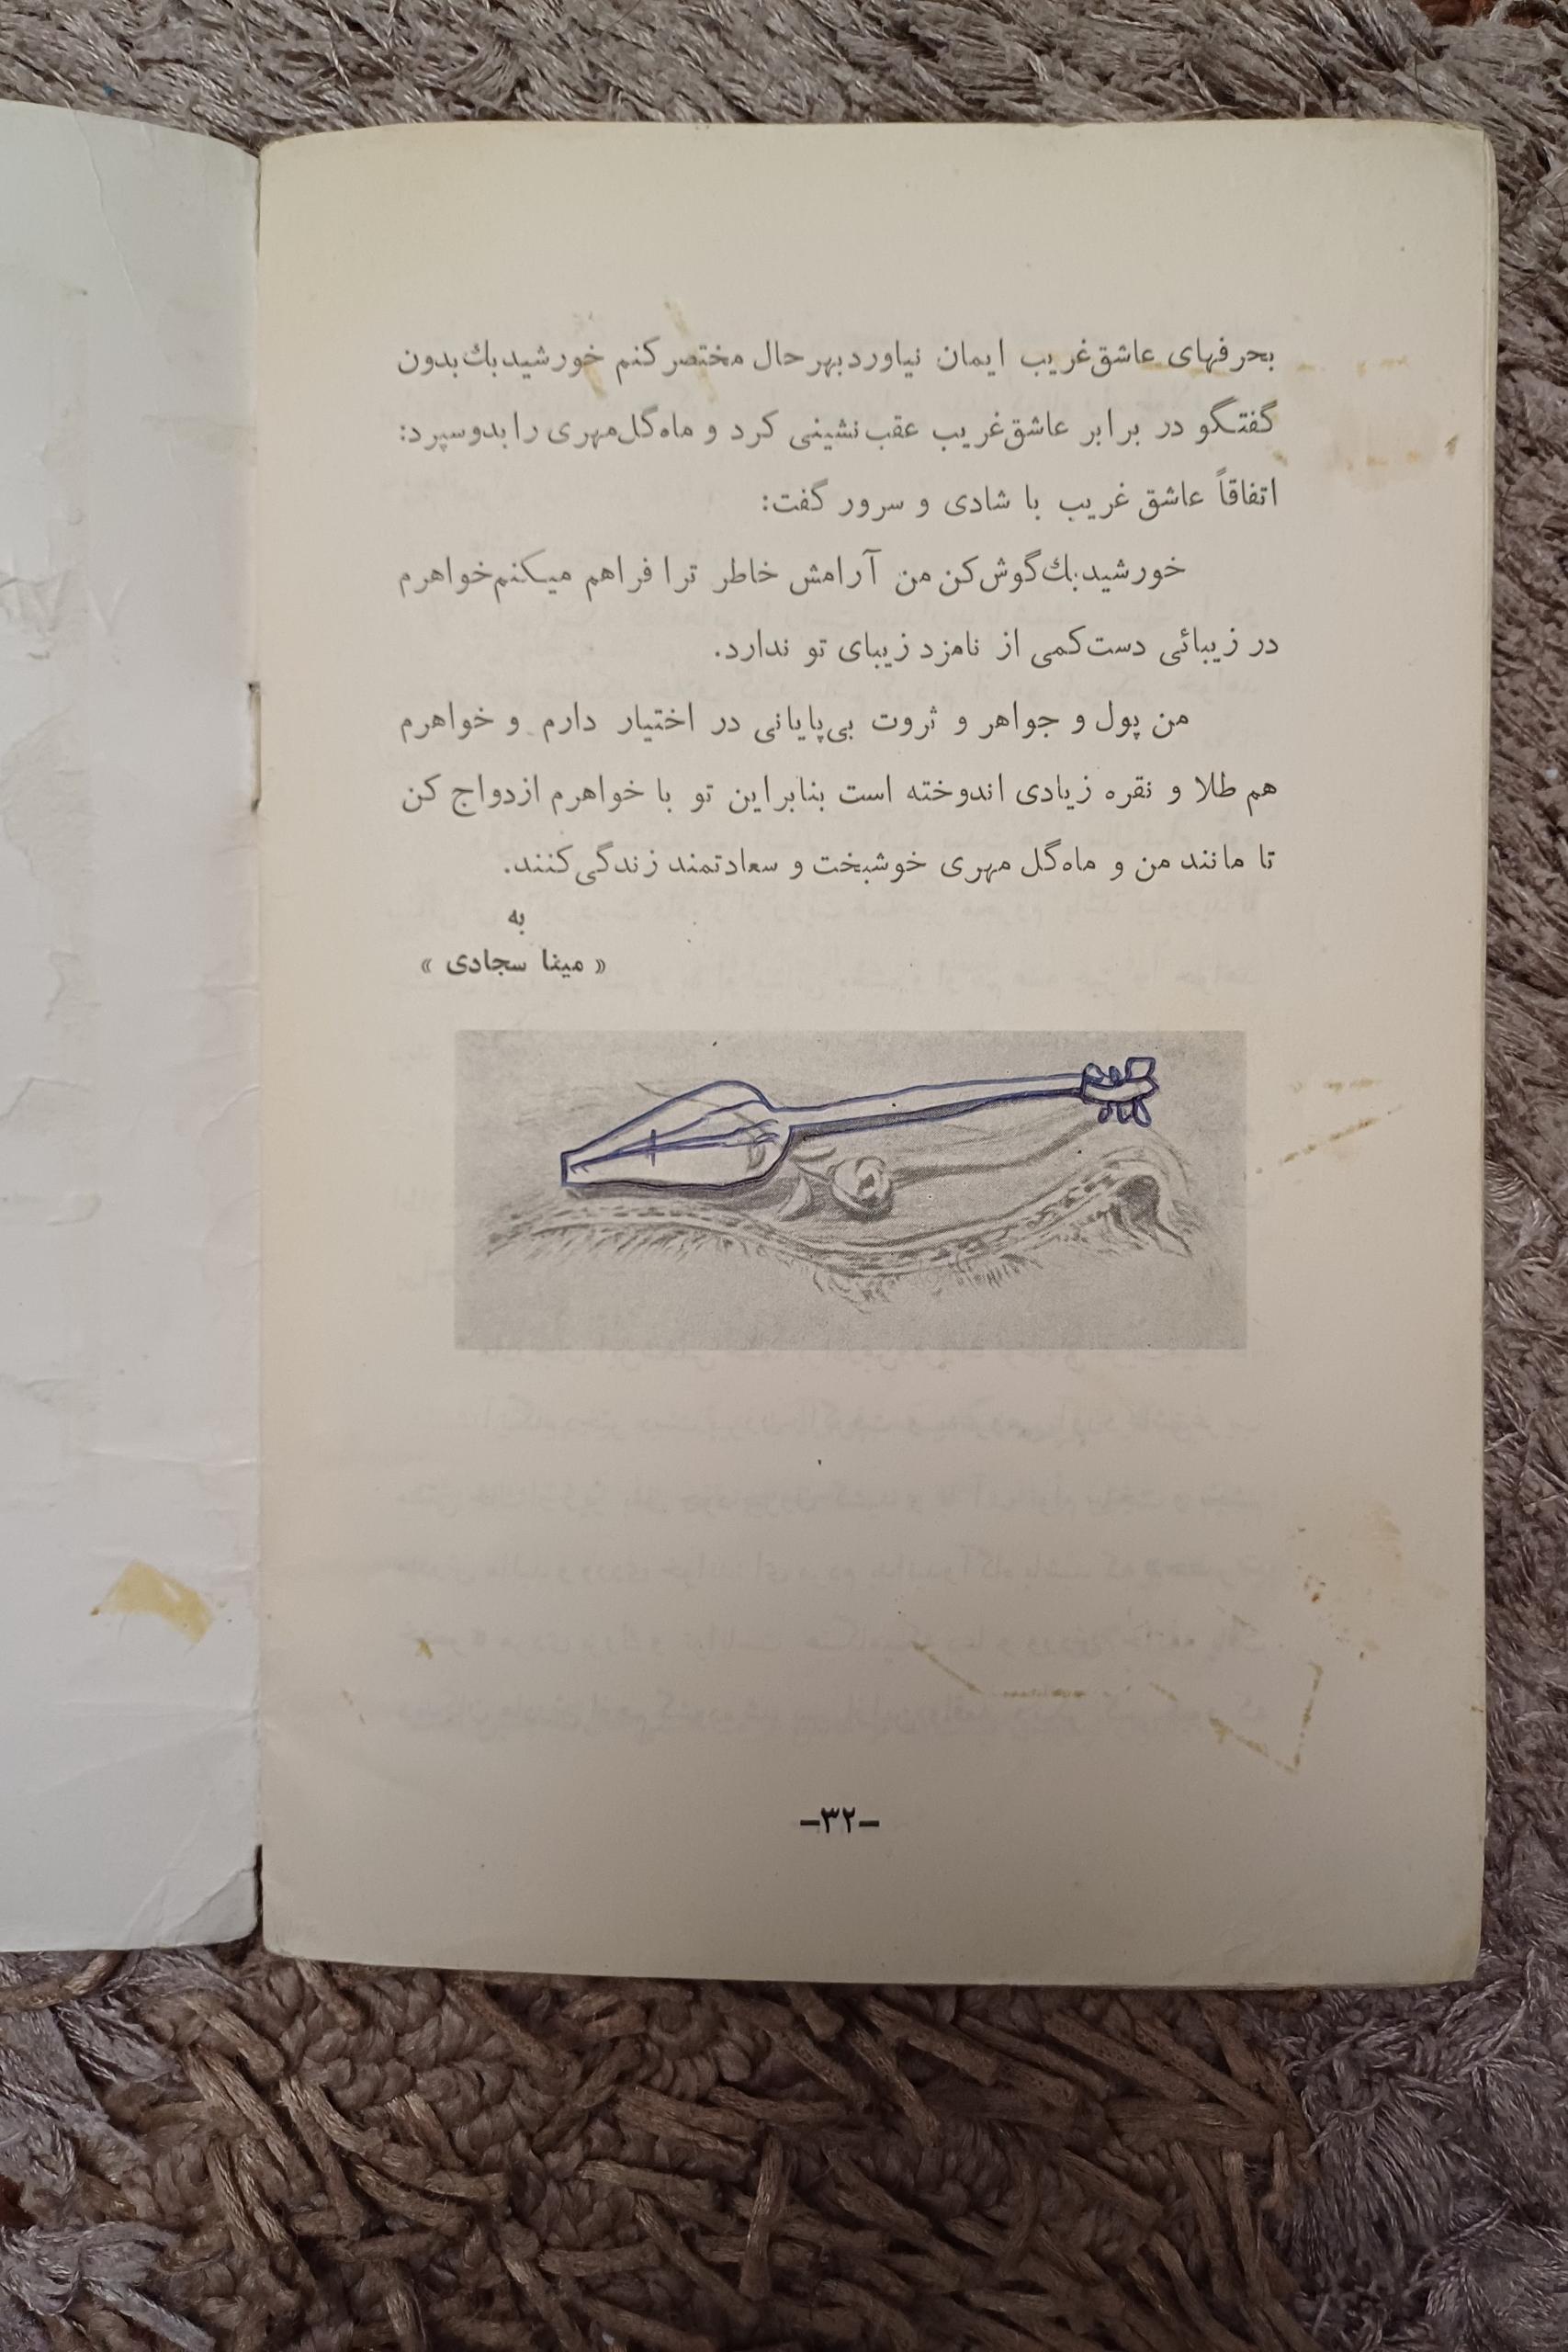 بحرفهای عاشق‌غریب ایمان نیاورد بهرحال مختصر کنم خورشیدبك بدون
گفتگو در برابر عاشق‌غریب عقب‌نشینی کرد و ماه‌گل‌مهری را بدو سپرد:
اتفاقاً عاشق غریب با شادی و سرور گفت:
خورشیدبك گوش‌کن من آرامش خاطر ترا فراهم میکنم خواهرم
در زیبائی دست‌کمی از نامزد زیبای تو ندارد.
من پول و جواهر و ثروت بی‌پایانی در اختیار دارم و خواهرم
هم طلا و نقره زیادی اندوخته است بنابراین تو با خواهرم ازدواج کن
تا مانند من و ماه‌گل مهری خوشبخت و سعادتمند زندگی‌کنند.
به
« مینا سجادی »
-۳۲-